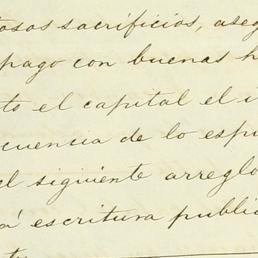 tosos sacrificios, aseg
pago con buenas h
to el capital el i
cuencia de lo espu
el siguiente arreglo
á escritura public